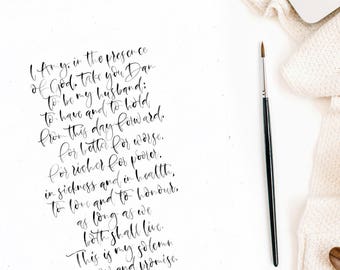 I, Amy, in the presence
of God, take you Dan
to be my husband;
to have and to hold
from this day forward,
for better for worse,
for richer for poorer,
in sickness and in health,
to love and to honour,
as long as we
both shall live.
This is my solemn
and promise.